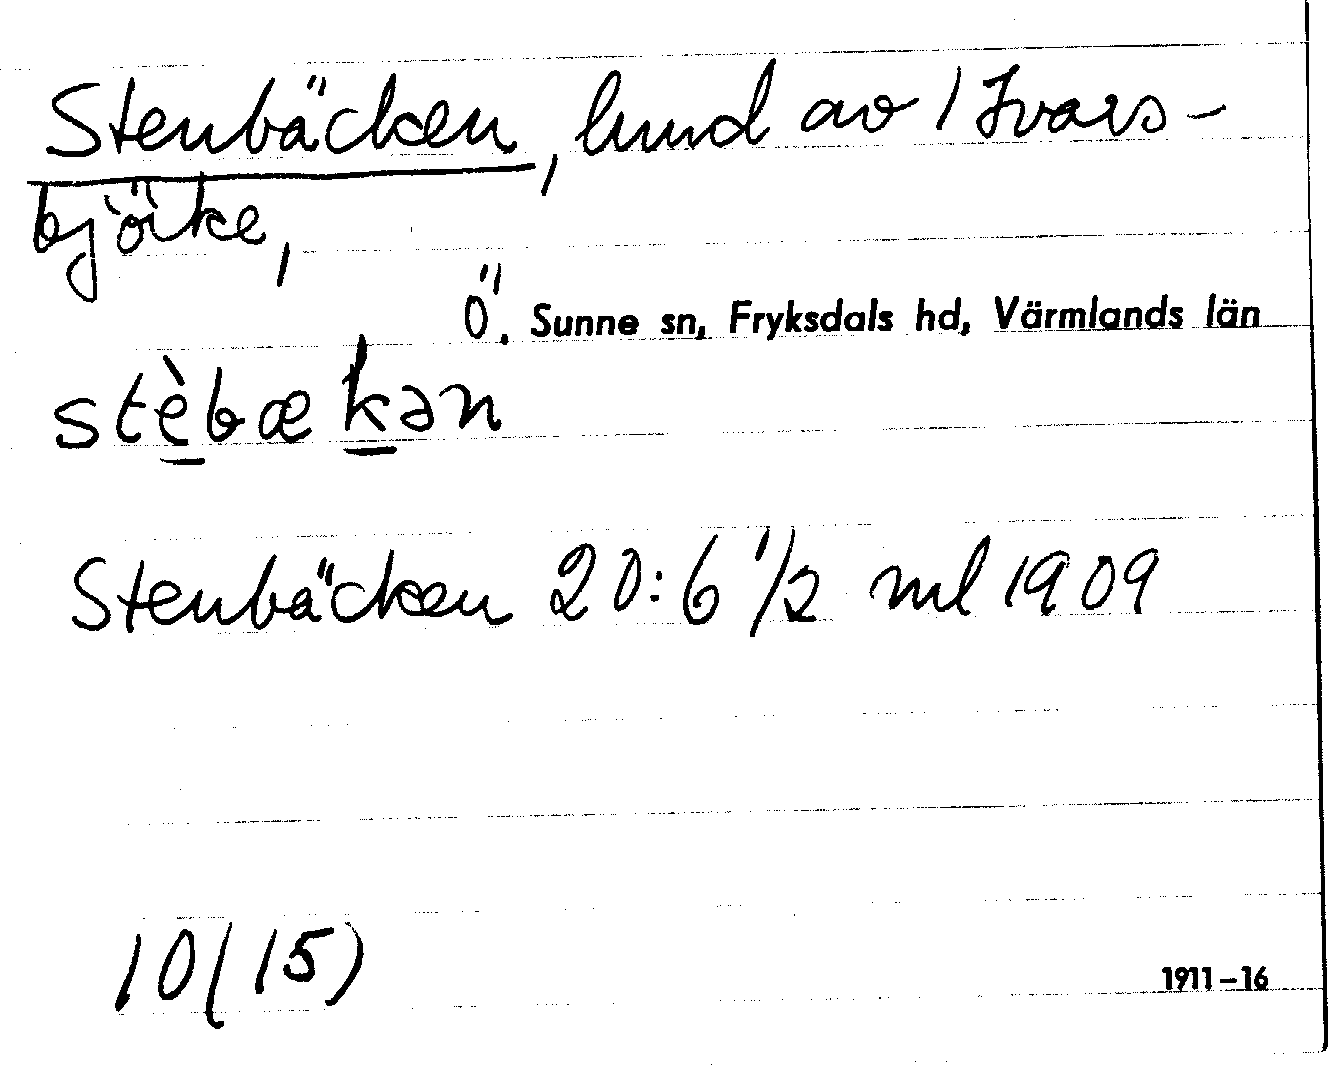 Stenbäcken, hmd av 1 Ivars-
björke,
Ö. Sunne sn, Fryksdals hd, Värmlands län
stèbækən
Stenbäcken 20:6 1/2 ml 1909
10(15)
1911-16